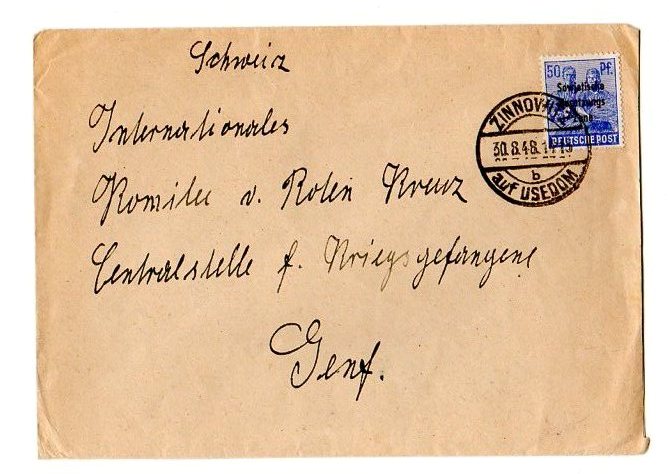 Schweiz
50 Pf.
Sowjetische
Besatzungs
Zone
DEUTSCHE POST
ZINNOWITZ
30.8.48.
b
auf USEDOM
Internationales
Komitee v. Roten Kreuz
Centralstelle f. Kriegsgefangene
Genf.